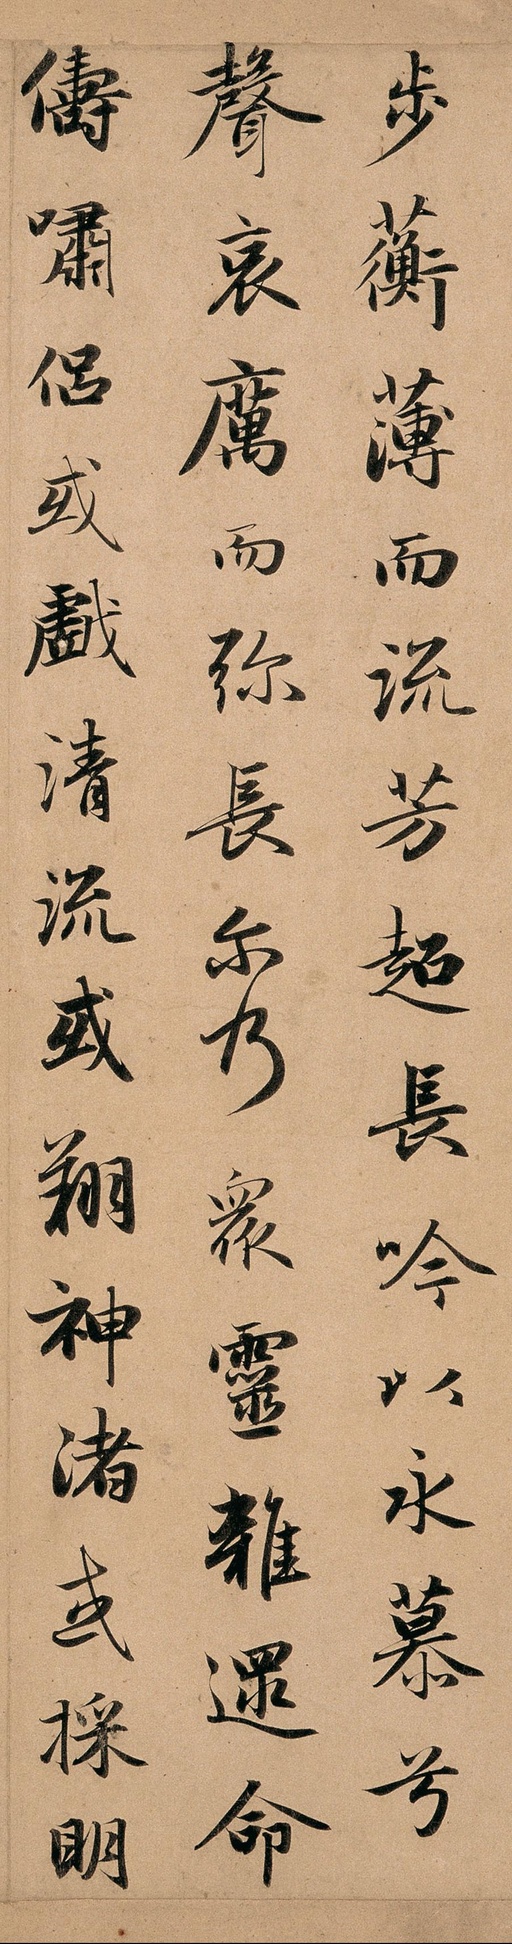 步蘅薄而流芳超長吟以永慕兮
聲哀厲而弥長尒乃衆靈雜遝命
儔嘯侶或戲清流或翔神渚或採明